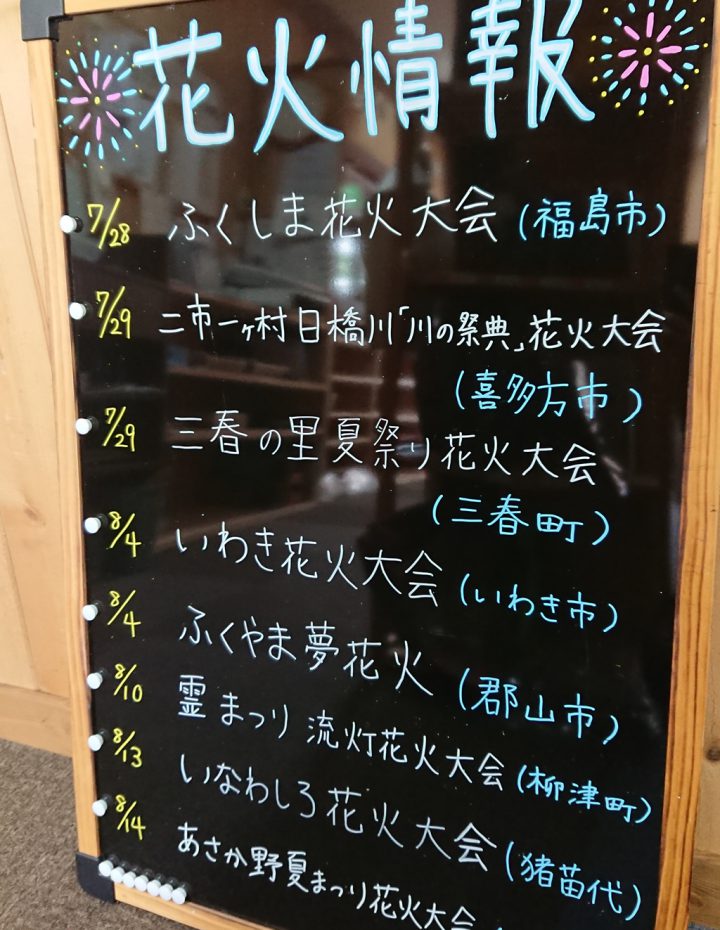 花火情報
7/28 ふくしま花火大会(福島市)
7/29 二市一ヶ村日橋川「川の祭典」花火大会
(喜多方市)
7/29 三春の里夏祭り花火大会
(三春町)
8/4 いわき花火大会(いわき市)
8/4 ふくやま夢花火(郡山市)
8/10 霊まつり流灯花火大会(柳津町)
8/13 いなわしろ花火大会(猪苗代)
8/14 あさか野夏まつり花火大会